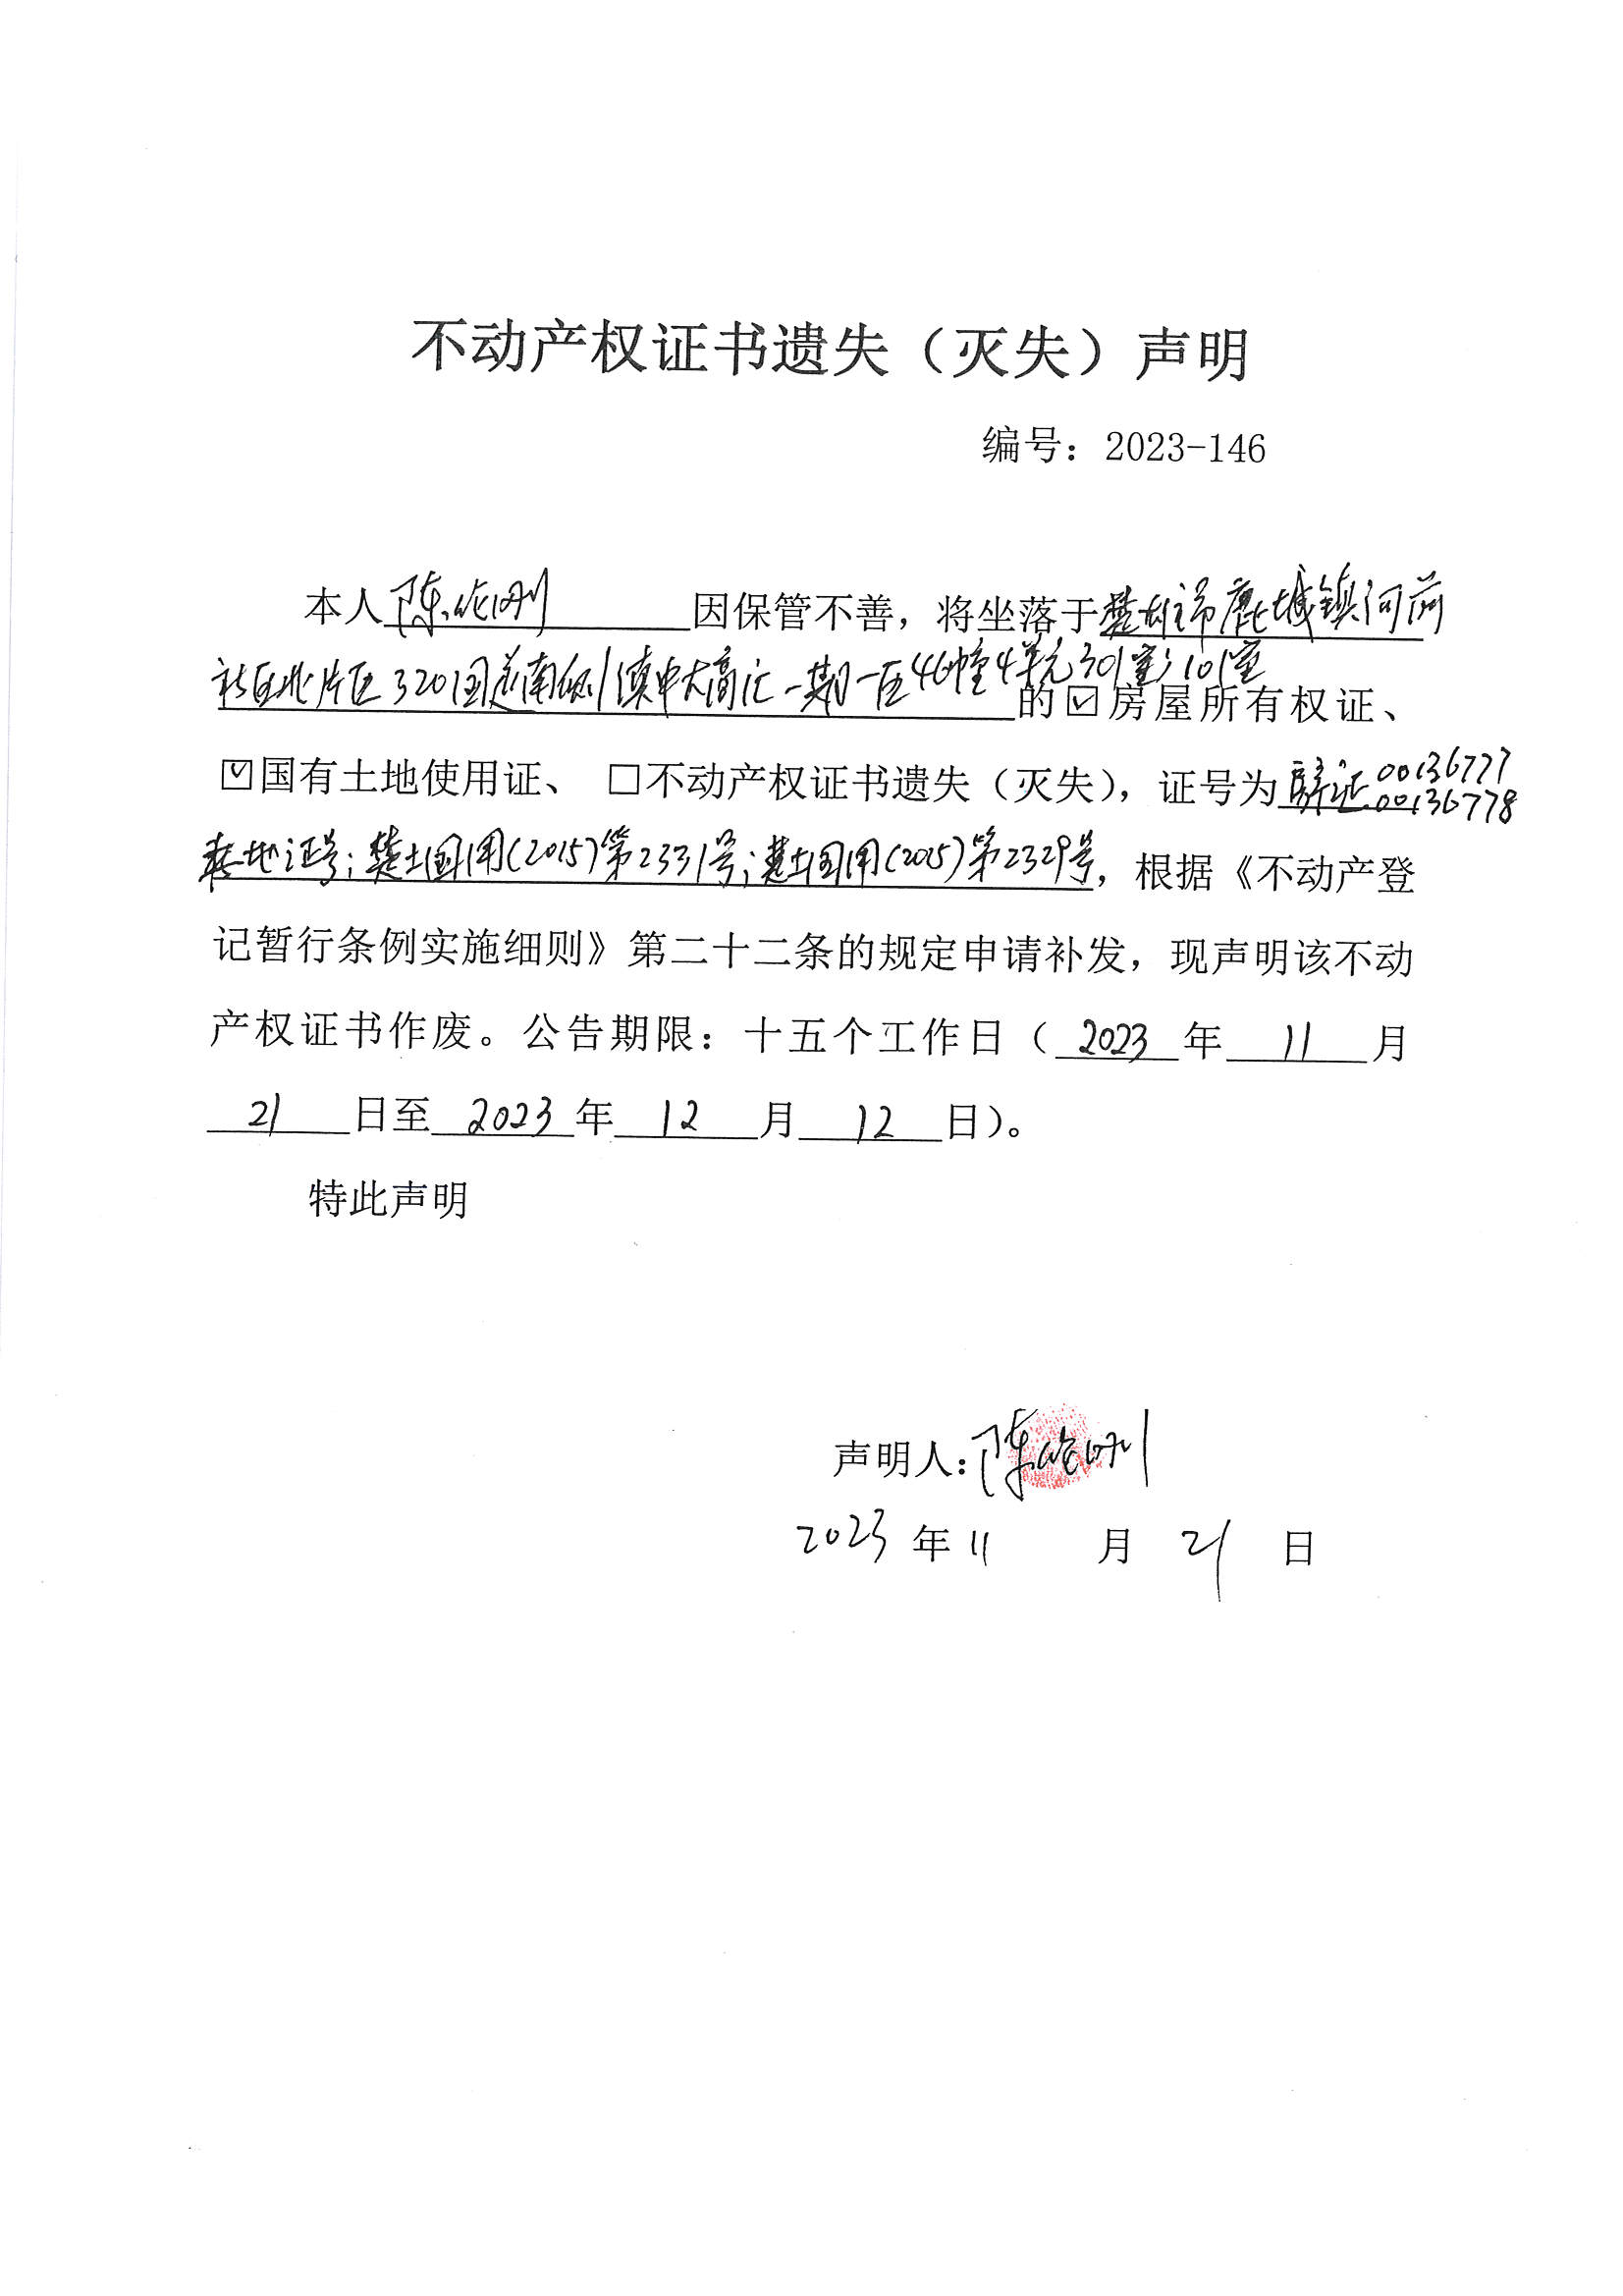 不动产权证书遗失（灭失）声明
编号：2023-146
本人陈 因保管不善，将坐落于楚雄市鹿城镇河前
社区北片区320国道南侧滇中大高汇一期一区46幢4单元301室;101室的☑房屋所有权证、
☑国有土地使用证、□不动产权证书遗失（灭失），证号为房权证00136777
00136778
土地证号;楚土国用(2015)第2331号;楚土国用(2015)第2329号，根据《不动产登
记暂行条例实施细则》第二十二条的规定申请补发，现声明该不动
产权证书作废。公告期限：十五个工作日（2023年11月
21日至2023年12月12日）。
特此声明
声明人:陈
2023年11月21日